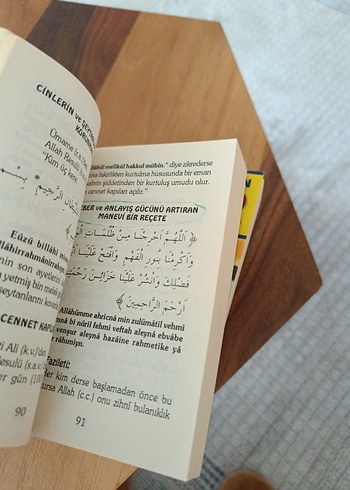 CİNLERİN ve ŞEY
KORUN
Ümame (r.a.)'
Allah Resûlü
"Kim üç kere
Eûzü billâhi
lâhirrahmânirrahîm
nin son ayetleri
yetmiş bin melek
şeytanlarını kova
CENNET KAPIL
Ali (k.v.)'dan
Resulü (s.a.v.)
er gün (100
90
melikül hakkul mübin." diye zikrederse
fakirlikten kurtulma hususunda bir eman
kabrin şiddetinden bir kurtuluş umudu olur.
cennet kapıları açılır."
BER ve ANLAYIŞ GÜCÜNÜ ARTIRAN
MANEVİ BİR REÇETE
﴿ اَللّٰهُمَّ اَخْرِجْنَا مِنْ ظُلُمَاتِ الْوَهْمِ
وَاَكْرِمْنَا بِنُورِ الْفَهْمِ وَافْتَحْ عَلَيْنَا
فَضْلِكَ وَانْشُرْ عَلَيْنَا خَزَائِنَ رَحْمَتِكَ
اَرْحَمَ الرَّاحِمِينَ ﴾
Allâhümme ahricnâ min zulümâtil vehmi
nâ bi nûril fehmi veftah aleynâ ebvâbe
venşur aleynâ hazâine rahmetike yâ
râhımiyn.
Fazileti:
Her kim derse başlamadan önce bu
okursa Allah (c.c.) onu zihnî bulanıklık
91